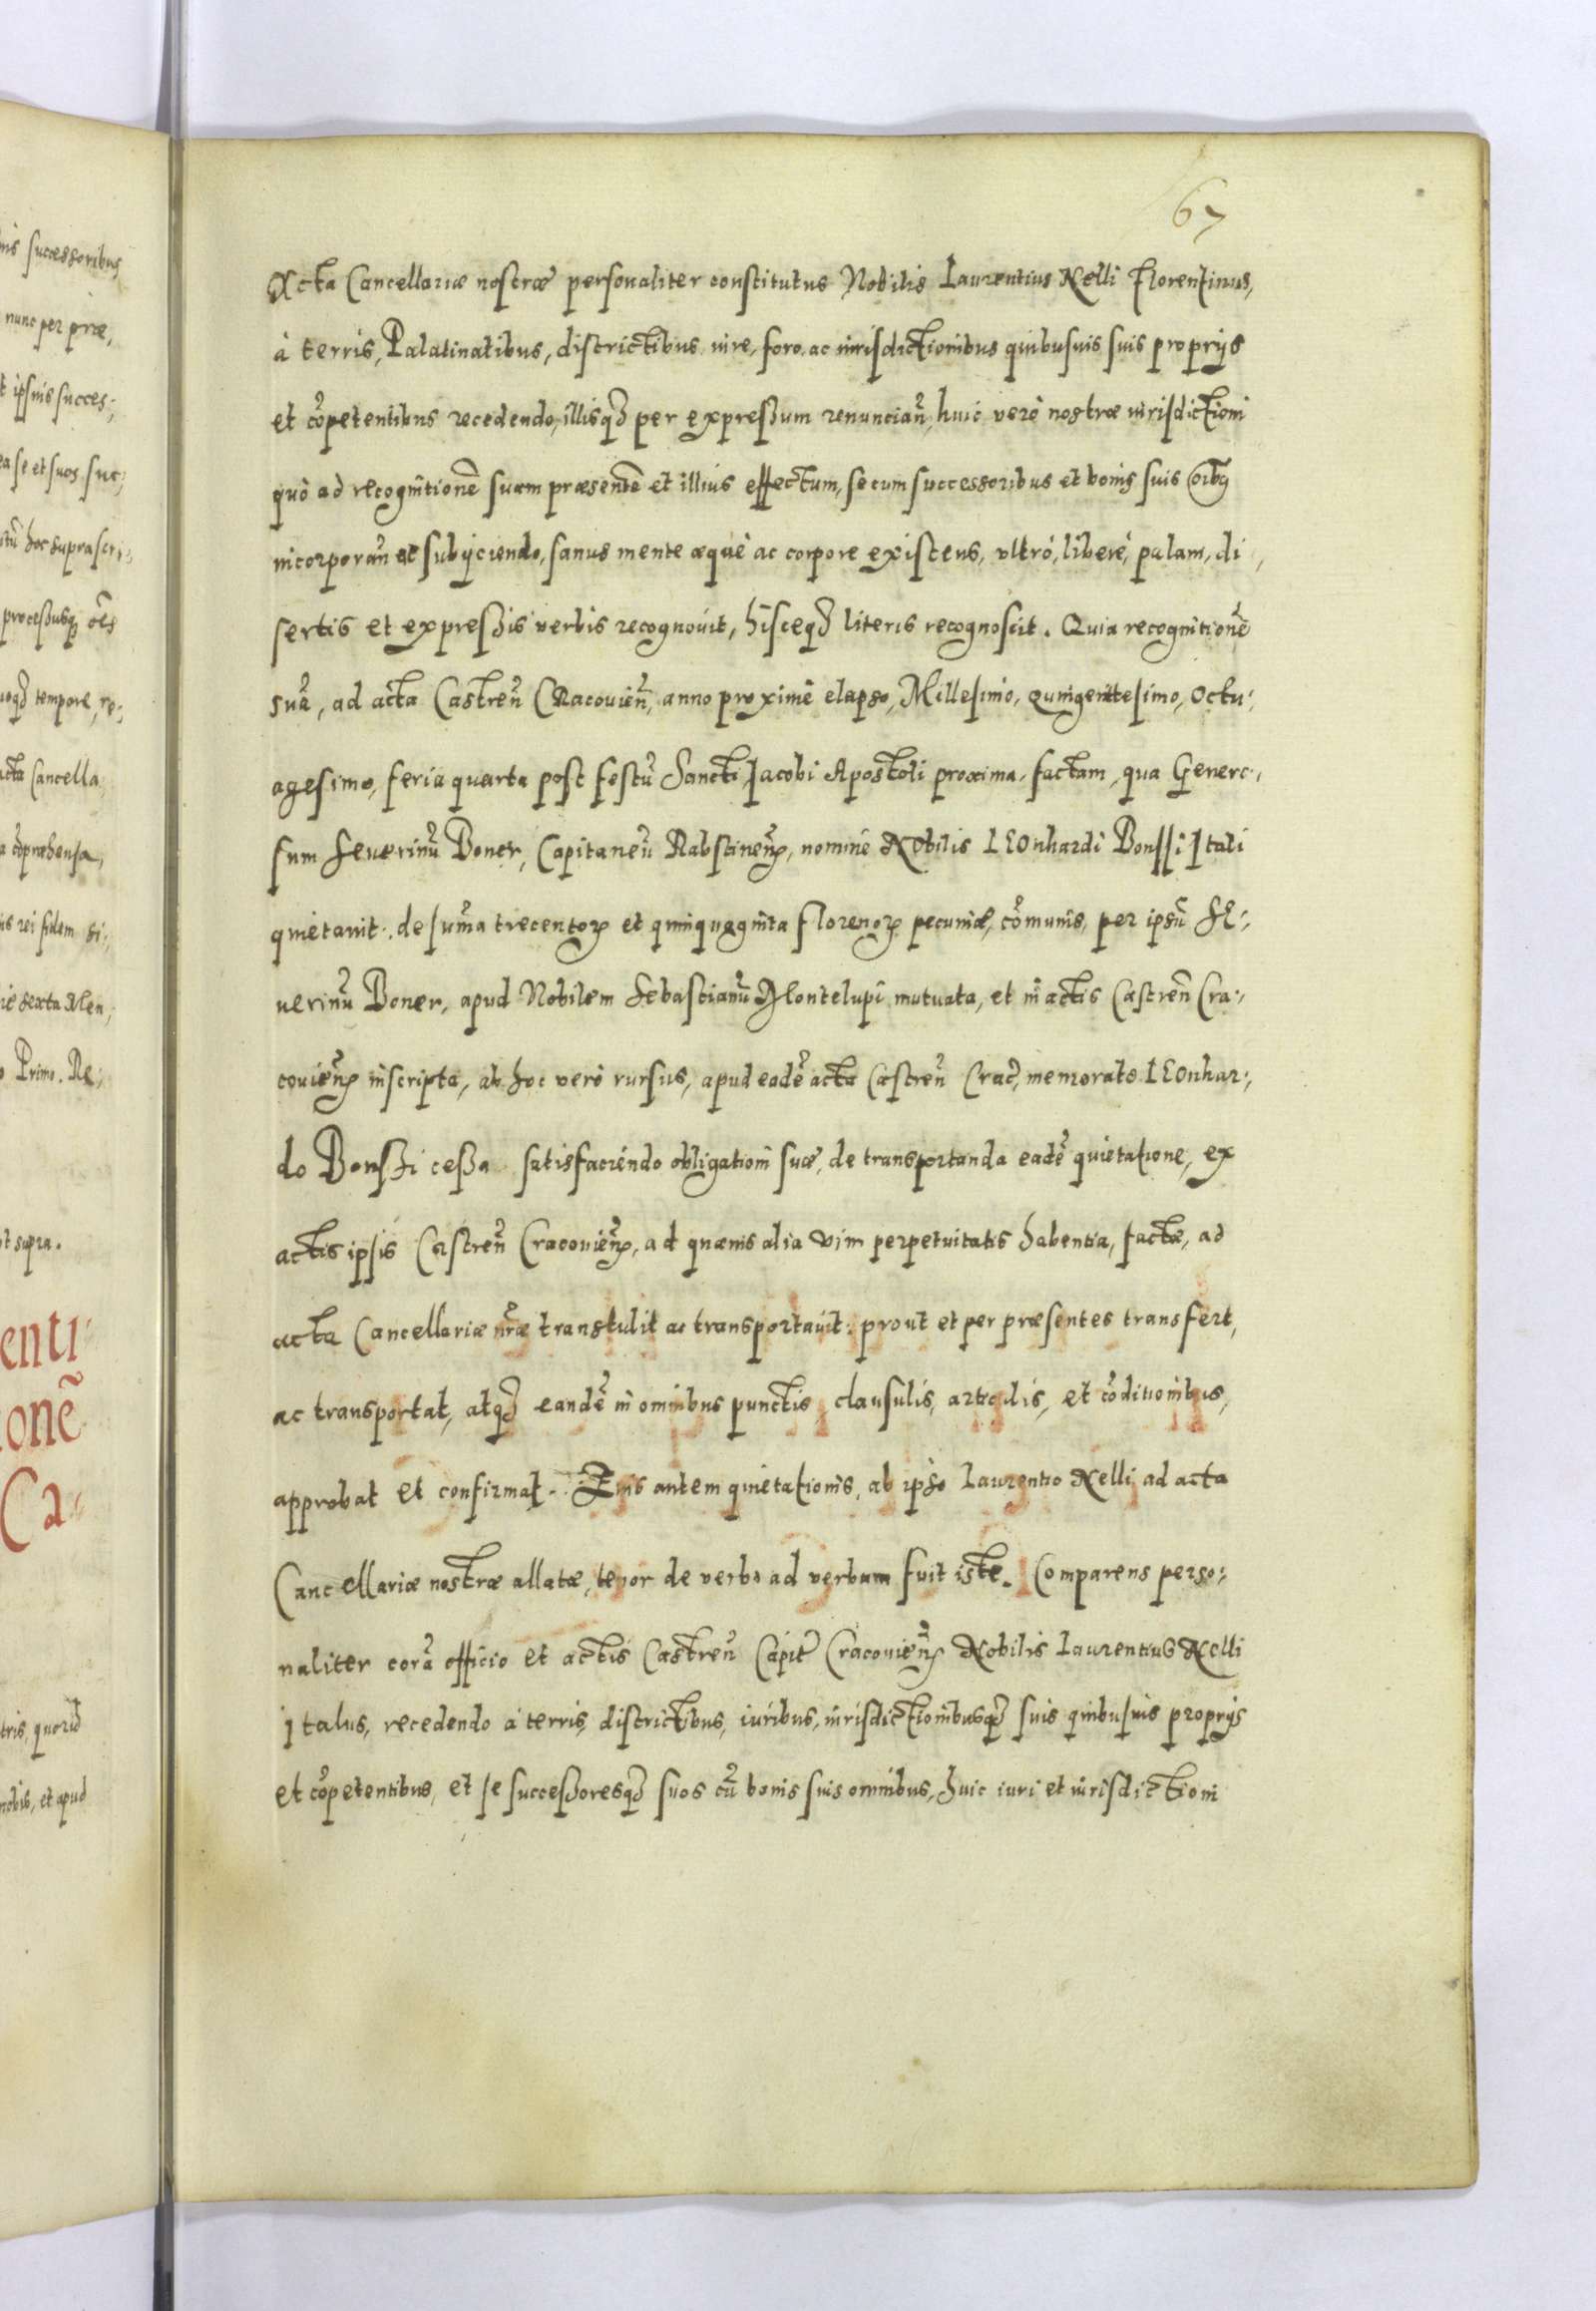 67
Acta Cancellariæ nostræ personaliter constitutus Nobilis Laurentius Nelli Florentinus,
à terris, Palatinatibus, districtibus iure, foro, ac iurisdictionibus quibusuis suis proprijs
et cõpetentibus recedendo, illisq₃ per expressum renunciañ, huic verò nostræ iurisdictioni
quò ad recognitionẽ suam præsentẽ et illius effectum, se cum successoribus et bonis suis oĩbꝰ
incorporañ et subijciendo, sanus mente æquè ac corpore existens, vltrò, liberè, palam, di,
sertis et expressis verbis recognouit, hisceq₃ literis recognoscit. Quia recognitionẽ
suã, ad acta Castreñ Cracouieñ, anno proximè elapso, Millesimo, quingentesimo, Octu:
agesimo, feria quarta post festũ Sancti Jacobi Apostoli proxima, factam, qua Genero:,
sum Seuerinũ Boner, Capitaneũ Rabstineñ, nomine Nobilis LEOnhardi Bonssi Itali
quietauit. de sum̃a trecentoꝝ et quinquaginta florenoꝝ pecuniæ, cõmunis, per ipsũ SE:,
uerinũ Boner, apud Nobilem Sebastianũ Montelupi mutuata, et in actis Castreñ Cra:,
couieñ inscripta, ab hoc verò rursus, apud eadẽ acta Castreñ Crac̃, memorato LEOnhar:,
do Bonssi cessa satisfaciendo obligationi suæ, de transportanda eadẽ quietatione, ex
actis ipsis Castreñ Cracouieñ, ad quæuis alia vim perpetuitatis habentia, factæ, ad
acta Cancellariæ nr̃æ transtulit ac transportauit: prout et per præsentes transfert,
ac transportat, atq₃ eandẽ in omnibus punctis, clausulis, articulis, et cõditionibus,
approbat et confirmat. Eius autem quietationis, ab ipso Laurentio Nelli ad acta
Cancellariæ nostræ allatæ, tenor de verbo ad verbum fuit iste. Comparens perso:,
naliter corã officio et actis Castreñ Capit̃ Cracouieñ Nobilis Laurentius Nelli
Italus, recedendo à terris, districtibus, iuribus, iurisdictionibusq₃ suis quibusuis proprijs
et cõpetentibus, et se successoresq₃ suos cũ bonis suis omnibus, huic iuri et iurisdictioni
successoribus
nunc per præ,
ipsius succes:,
se et suos suc:,
hoc suprascri:,
processusq₃ oẽs
tempore, re:,
acta Cancella
cõpræhensa,
rei fidem si:,
sexta Men:,
Primo. Re:,
ut supra.
enti
onẽ
Ca
nobis, et apud